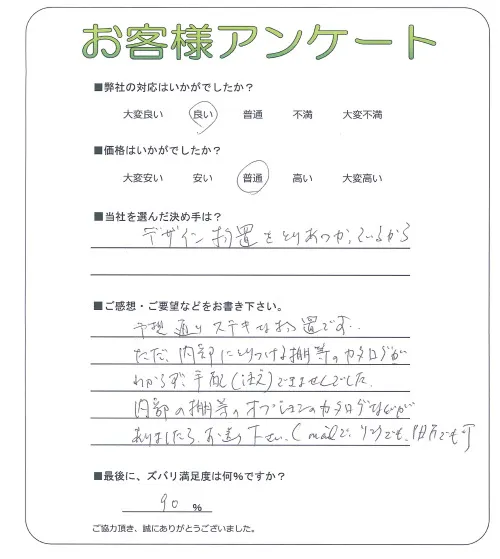 お客様アンケート
■弊社の対応はいかがでしたか？
大変良い 良い 普通 不満 大変不満
■価格はいかがでしたか？
大変安い 安い 普通 高い 大変高い
■当社を選んだ決め手は？
デザイン物置をとりあつかっているから
■ご感想・ご要望などをお書き下さい。
予想通りステキなお物置です。
ただ、内部にとりつける棚等のカタログが
わからず、手配(注文)できませんでした。
内部の棚等のオプションのカタログなどが
ありましたら、お送り下さい。(mailで、リンクでも、でも可
■最後に、ズバリ満足度は何％ですか？
90 ％
ご協力頂き、誠にありがとうございました。